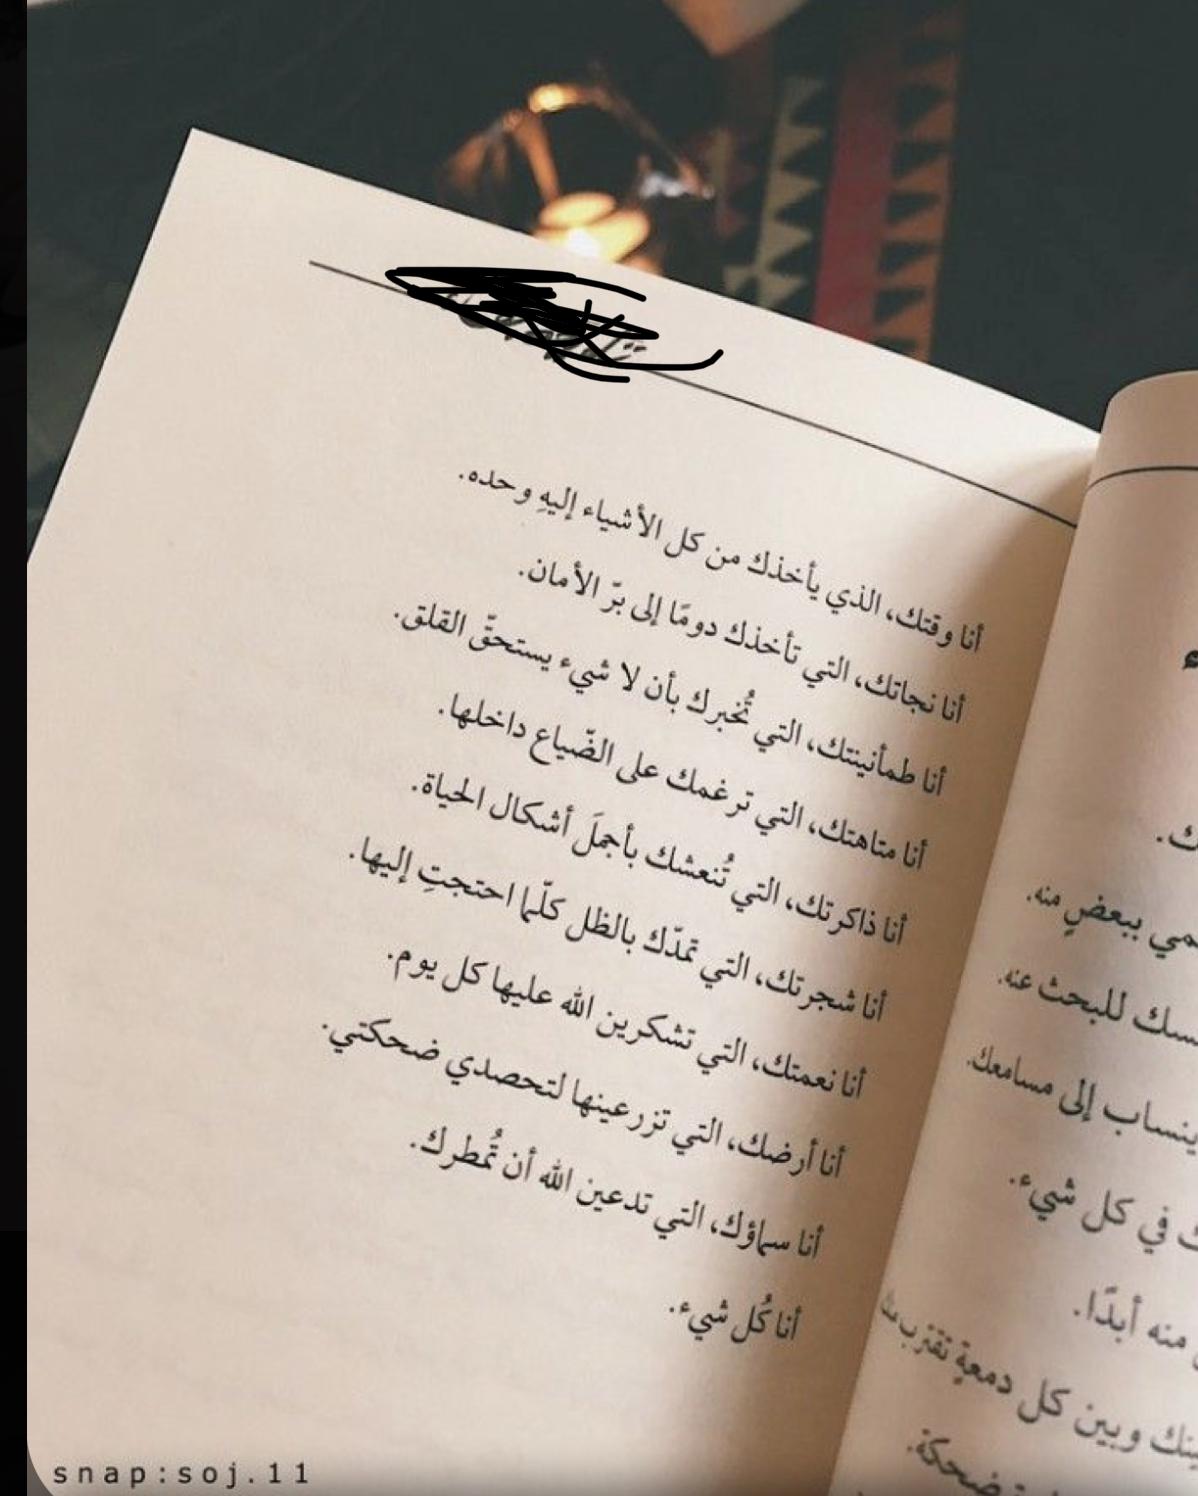 أنا وقتك، الذي يأخذك من كل الأشياء إليهِ وحده.
أنا نجاتك، التي تأخذك دومًا إلى برّ الأمان.
أنا طمأنينتك، التي تُخبرك بأن لا شيء يستحقّ القلق.
أنا متاهتك، التي ترغمك على الضّياع داخلها.
أنا ذاكرتك، التي تُنعشك بأجملَ أشكال الحياة.
أنا شجرتك، التي تمدّك بالظل كلّما احتجتِ إليها.
أنا نعمتك، التي تشكرين الله عليها كل يوم.
أنا أرضك، التي تزرعينها لتحصدي ضحكتي.
أنا سماؤك، التي تدعين الله أن تُمطرك.
أنا كُل شيء.
ببعضٍ منه.
للبحث عنه.
ينساب إلى مسامعك.
في كل شيء.
منه أبدًا.
وبين كل دمعةٍ تقترب
ضحكة.
snap:soj.11